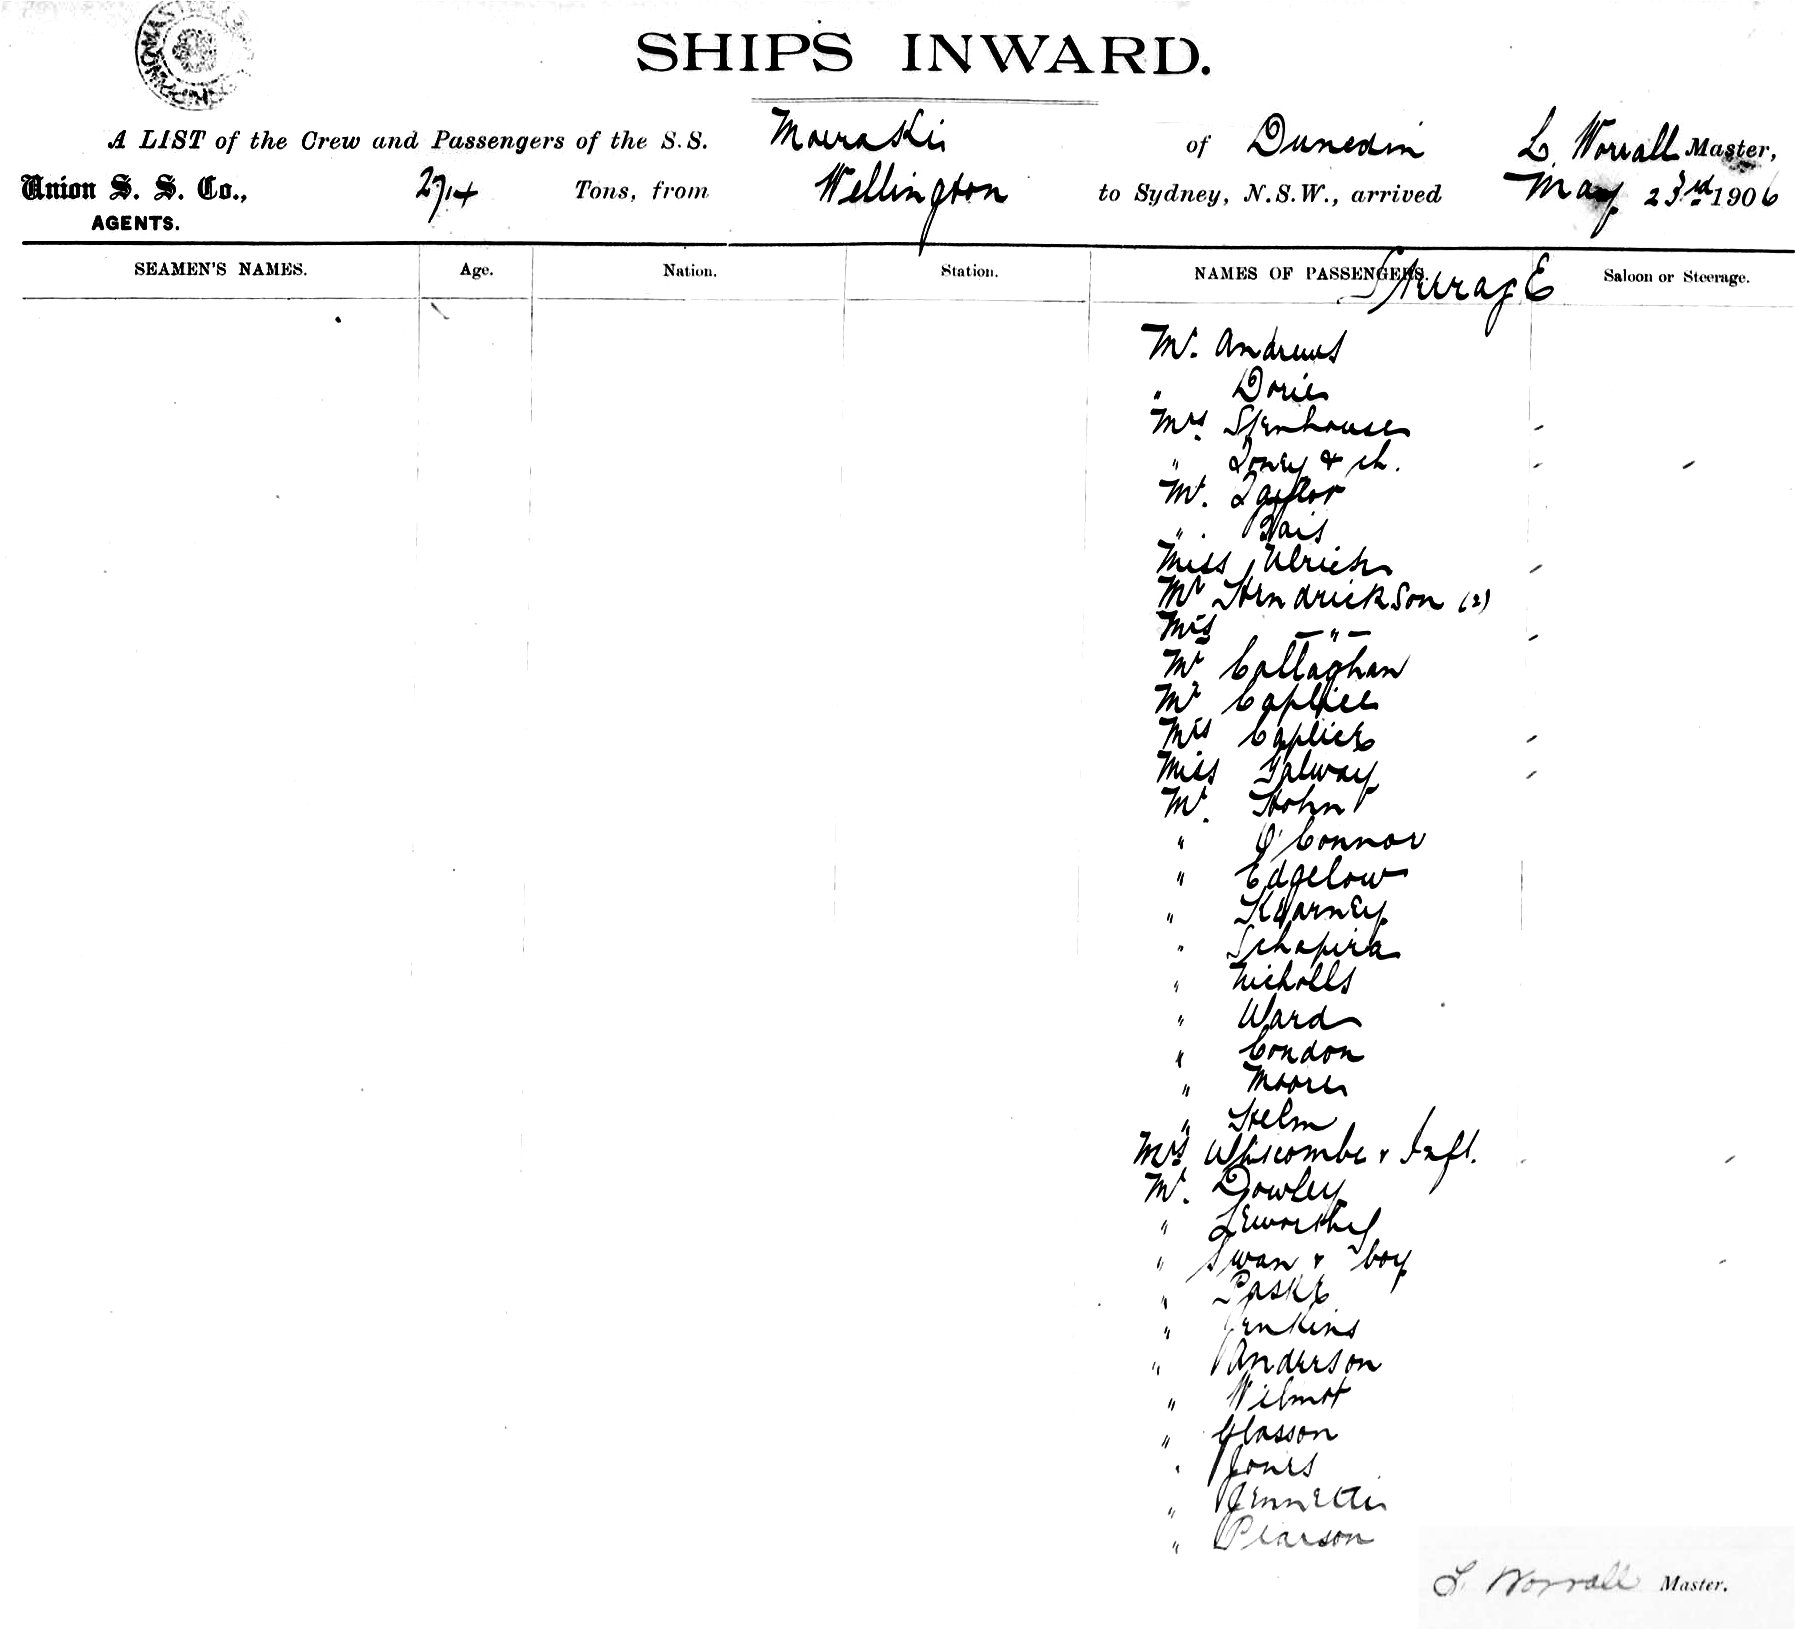 SHIPS INWARD.
A LIST of the Crew and Passengers of the S.S. Moeraki of Dunedin L. Worrall Master,
Union S. S. Co., 2714 Tons, from Wellington to Sydney, N.S.W., arrived May 23rd 1906
AGENTS.
SEAMEN'S NAMES. Age. Nation. Station. NAMES OF PASSENGERS. Saloon or Steerage.
Steerage
Mr. Andrews
" Dorie
Mrs Stenhouse
" Toney & ch.
Mr. Taylor
" Bais
Miss Ulrich
Mr Hendrickson (2)
Mrs — " —
Mr Callaghan
Mr Caplice
Mrs Caplice
Miss Galway
Mr. Hohn
" O'Connor
" Edgelow
" Kearney
" Schapira
" Nicholls
" Ward
" Condon
" Moore
" Helm
Mrs Whiscombe & Inft.
Mr. Dowley
" Leworthy
" Swan & boy
" Paske
" Jenkins
" Anderson
" Wilmot
" Glasson
" Jones
" Jennette
" Pearson
L. Worrall Master.